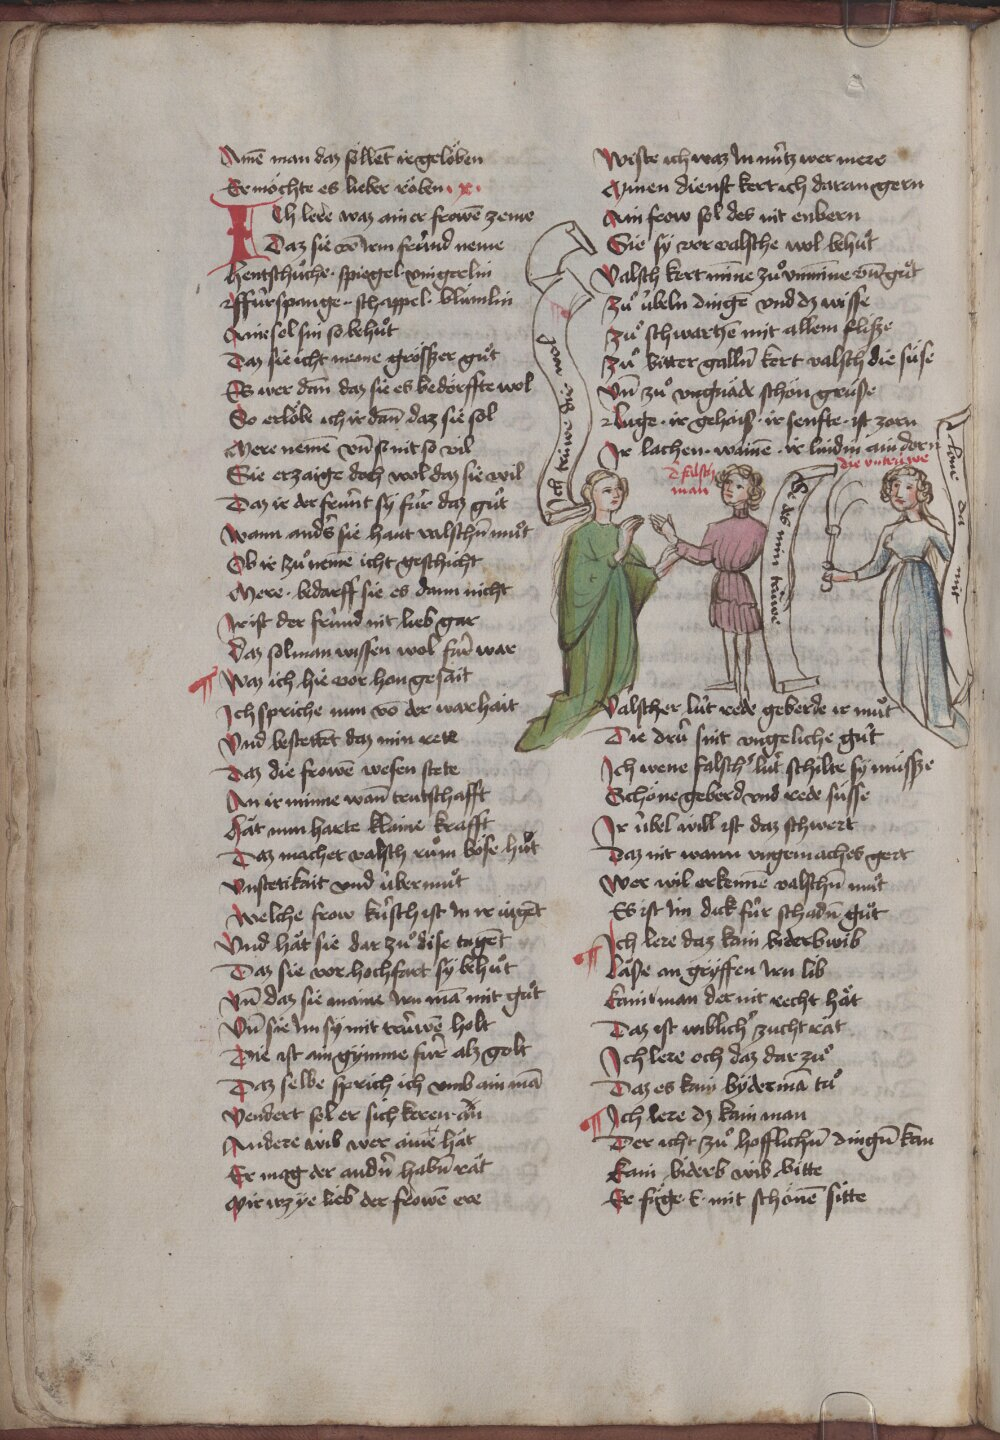 Amē man daz söllēt ir gelöben
Er möchte es lieber röben · x ·
Ich lere waz ainer frowē zeme
Daz sie vō irm frúnd neme
Hentschůche · spiegel · vingerlin
Fúrspange · schappel · blůmlin
Ainē sol sin so behůt
Daz sie icht neme grösszer gůt
Es wer dañ daz sie es bedörffte wol
So erlöbe ich ir dañ daz sie sol
Mere nemē vñ sunit so vil
Sie erzaige doch wol daz sie wil
Daz ir der frúnt sy fúr daz gůt
Wann anders sie haut valschn̄ můt
Ob ir zů nemē icht geschicht
Mere · bedarff sie es dann nicht
Ir ist der frúnd nit lieb gar
Daz sol man wissen wol fúr war
Waz ich hie vor hon gesait
Ich spriche nun vō der warhait
Und bestettet daz min rete
Daz die frowē wesen stete
An ir minne wañ trutschafft
Hät nun harte klaine krafft
Daz machet valsch rům böse hůt
Vnstetikait vnd úbermůt
Welche frow kúsch ist In ir iúgēt
Vnd hät sie dar zů dise tugēt
Daz sie vor hochfart sy behůt
Vñ daz sie maine irn mā mit gůt
Vñ sie Im sy mit trúwē holt
Die ist ain gymme fúr alz golt
Daz selbe sprich ich vmb ain mā
Nendert sol er sich keren an
Andere wib wer ainē hät
Er mag der andn̄ habn̄ rät
Mir ist ye lieb der frowē ere
Wiste ich waz In nútz wer mere
Minen dienst kert ich daran gern
Ain frow sol des nit enbern
Sie sy vor valsche wol behůt
Valsch kert minne zů vnminne vñ gůt
Zů úbeln dingē vnd dz wisse
Zů schwartzē mit allem flisze
Zů bitter galln̄ kert valsch die sůse
Vñ zů vngnäde schön grůse
Luge · ir gehaiß · ir senfte · ist zorn
Ir lachen · wainē · ir lindin ain dorn
Ich trúwe dir wol
d' falsch
man
He des min trúwe
die vntrúwe
lone du mir
Valscher lút rede geberde ir můt
Die drú sint vngeliche gůt
Ich wene falsch' lút schilte sy müssze
Schöne geberd vnd rede süsse
Ir úbel will ist daz schwert
Daz nit wann vngemaches gert
Wer wil erkennē valschn̄ můt
Es ist Im dick fúr schadn̄ gůt
Ich lere daz kain biderb wib
Läse an gryffen irn lib
Kainē man der nit recht hät
Daz ist wiblich' zucht rät
Ich lere och daz dar zů
Daz es kain byderman tů
Ich lere dz kain man
Der icht zů hofflichn̄ dingn̄ kan
Kain biderb wib bitte
Er füge E · mit schönē sitte